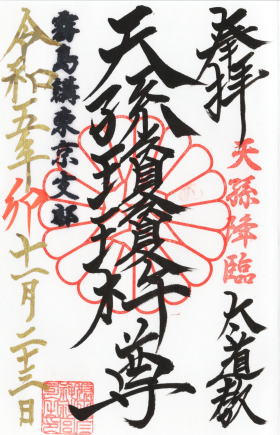 奉拝
天孫降臨
大道教
天孫瓊瓊杵尊
霧島講東京支部
令和五年卯十一月二十三日